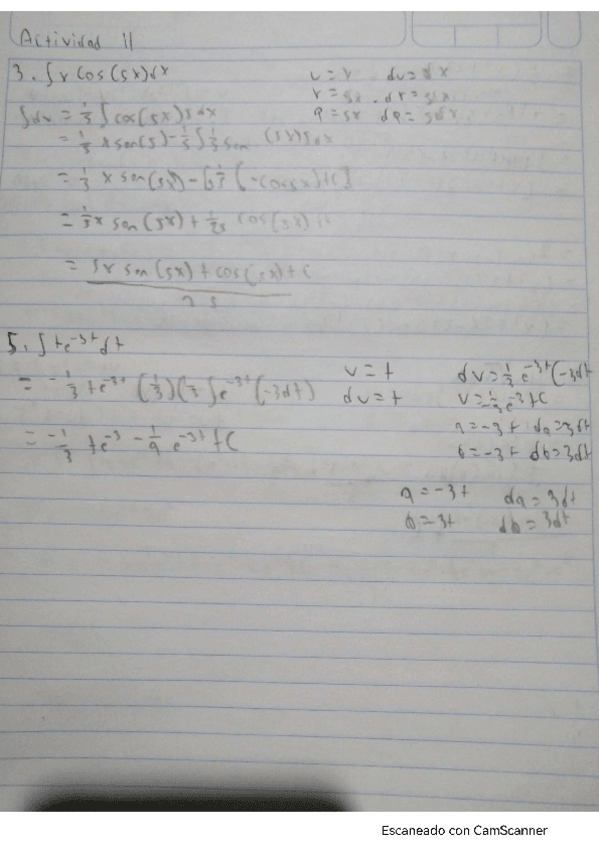 Actividad 11
3. ∫ x cos(5x)dx
u = x du = dx
∫dv = 1/5 ∫cos(5x)5dx
= 1/5 x sen(5) - 1/5 ∫ 1/5 sen (5x)5dx
= 1/5 x sen(5x) - [ 1/5 [-cos5x)+C]
= 1/5x sen(5x) + 1/25 cos(5x)
= 5x sen(5x) + cos(5x)+C
25
5. ∫te^-3t dt
= -1/3 te^-3t ∫e^-3t (-3dt)
v = t
dv = t
= -1/3 te^-3 - 1/9 e^-3t +C
a = -3t da = 3dt
b = -3t db = 3dt
a = -3t da = 3dt
b = 3t db = 3dt
Escaneado con CamScanner